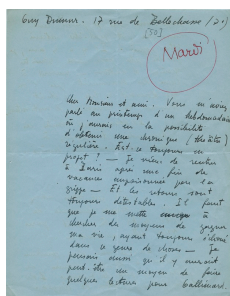 Guy Dumur. 17 rue de Bellechasse (7e)
[50]
Mardi
Cher Monsieur et ami. Vous m'aviez
parlé au printemps d'un hebdomadaire
où j'aurais eu la possibilité
d'obtenir une chronique (théâtre)
régulière. Est-ce toujours un
projet ? — Je viens de rentrer
à Paris après une fin de
vacances empoisonnée par la
grippe — Et les retours sont
toujours détestables. Il faut
que je me mette à
chercher des moyens de gagner
ma vie, ayant toujours
dans ce genre de choses — Je
pensais aussi qu'il y aurait
peut-être un moyen de faire
quelques lectures pour Gallimard.